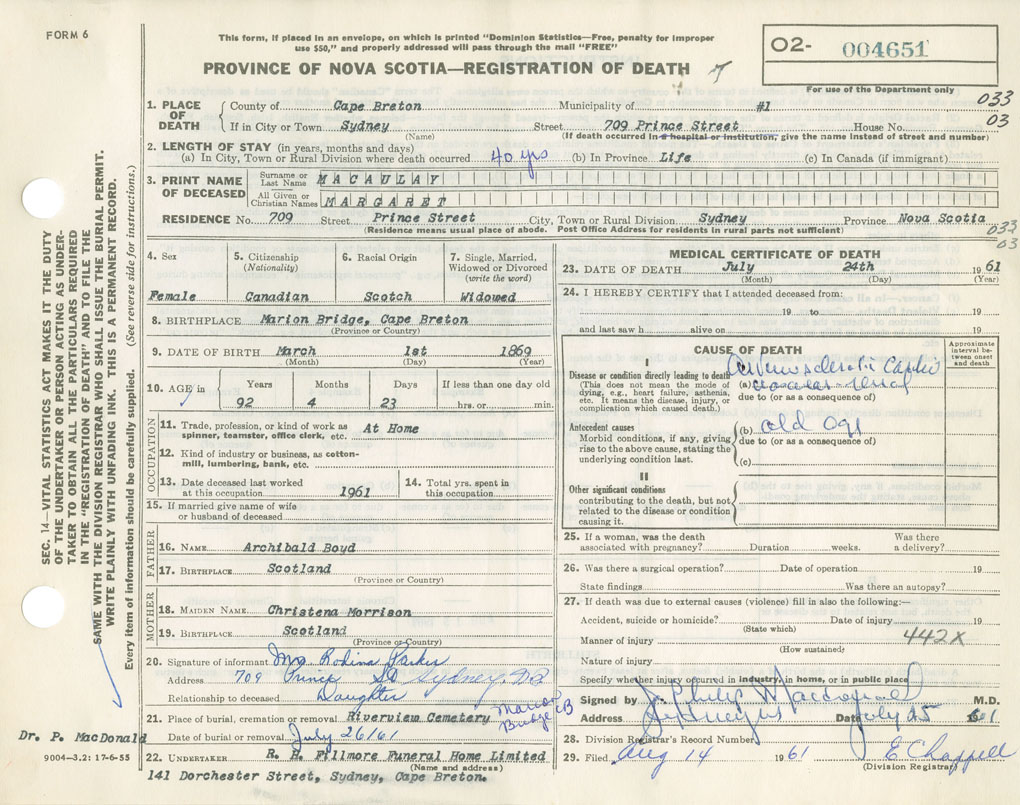 FORM 6
This form, if placed in an envelope, on which is printed "Dominion Statistics—Free, penalty for improper
use $50," and properly addressed will pass through the mail "FREE"
O2- 004651
For use of the Department only
PROVINCE OF NOVA SCOTIA—REGISTRATION OF DEATH
033
03
1. PLACE OF DEATH
County of Cape Breton Municipality of #1
If in City or Town Sydney Street 709 Prince Street House No.
(Name) (If death occurred in a hospital or institution, give the name instead of street and number)
2. LENGTH OF STAY (in years, months and days)
(a) In City, Town or Rural Division where death occurred 40 yrs (b) In Province Life (c) In Canada (if immigrant)
3. PRINT NAME OF DECEASED
Surname or Last Name MACAULAY
All Given or Christian Names MARGARET
RESIDENCE No. 709 Street Prince Street City, Town or Rural Division Sydney Province Nova Scotia
(Residence means usual place of abode. Post Office Address for residents in rural parts not sufficient)
033
03
4. Sex
Female
5. Citizenship
(Nationality)
Canadian
6. Racial Origin
Scotch
7. Single, Married,
Widowed or Divorced
(write the word)
Widowed
8. BIRTHPLACE Marion Bridge, Cape Breton
(Province or Country)
9. DATE OF BIRTH March 1st 1869
(Month) (Day) (Year)
10. AGE in
Years Months Days If less than one day old
92 4 23 hrs. or min.
OCCUPATION
11. Trade, profession, or kind of work as
spinner, teamster, office clerk, etc. At Home
12. Kind of industry or business, as cotton-
mill, lumbering, bank, etc.
13. Date deceased last worked
at this occupation 1961
14. Total yrs. spent in
this occupation
15. If married give name of wife
or husband of deceased
FATHER
16. NAME Archibald Boyd
17. BIRTHPLACE Scotland
(Province or Country)
MOTHER
18. MAIDEN NAME Christena Morrison
19. BIRTHPLACE Scotland
(Province or Country)
20. Signature of informant Mrs Rodina Parker
Address 709 Prince St Sydney, NS
Relationship to deceased Daughter
21. Place of burial, cremation or removal Riverview Cemetery Marion
Bridge CB
Date of burial or removal July 26/61
22. UNDERTAKER R. H. Fillmore Funeral Home Limited
(Name and address)
141 Dorchester Street, Sydney, Cape Breton.
MEDICAL CERTIFICATE OF DEATH
23. DATE OF DEATH July 24th 1961
(Month) (Day) (Year)
24. I HEREBY CERTIFY that I attended deceased from:
19 to 19
and last saw h alive on 19
CAUSE OF DEATH
Approximate
interval be-
tween onset
and death
I
Disease or condition directly leading to death
(This does not mean the mode of
dying, e.g., heart failure, asthenia,
etc. It means the disease, injury, or
complication which caused death.)
(a) renal
due to (or as a consequence of)
Antecedent causes
Morbid conditions, if any, giving
rise to the above cause, stating the
underlying condition last.
(b) old age
due to (or as a consequence of)
(c)
II
Other significant conditions
contributing to the death, but not
related to the disease or condition
causing it.
25. If a woman, was the death Was there
associated with pregnancy? Duration weeks. a delivery?
26. Was there a surgical operation? Date of operation 19
State findings Was there an autopsy?
27. If death was due to external causes (violence) fill in also the following:—
Accident, suicide or homicide? Date of injury 19
(State which) 442X
Manner of injury
(How sustained)
Nature of injury
Specify whether injury occurred in industry, in home, or in public place
Signed by J. Philip Macdonald M.D.
Address Sydney NS Date July 25 1961
28. Division Registrar's Record Number
29. Filed Aug 14 1961 E Chappell
(Division Registrar)
SEC. 14—VITAL STATISTICS ACT MAKES IT THE DUTY
OF THE UNDERTAKER OR PERSON ACTING AS UNDER-
TAKER TO OBTAIN ALL THE PARTICULARS REQUIRED
IN THE "REGISTRATION OF DEATH" AND TO FILE THE
SAME WITH THE DIVISION REGISTRAR WHO SHALL ISSUE THE BURIAL PERMIT.
WRITE PLAINLY WITH UNFADING INK. THIS IS A PERMANENT RECORD.
Every item of information should be carefully supplied. (See reverse side for instructions.)
Dr. P. MacDonald
9004—3.2: 17-6-55